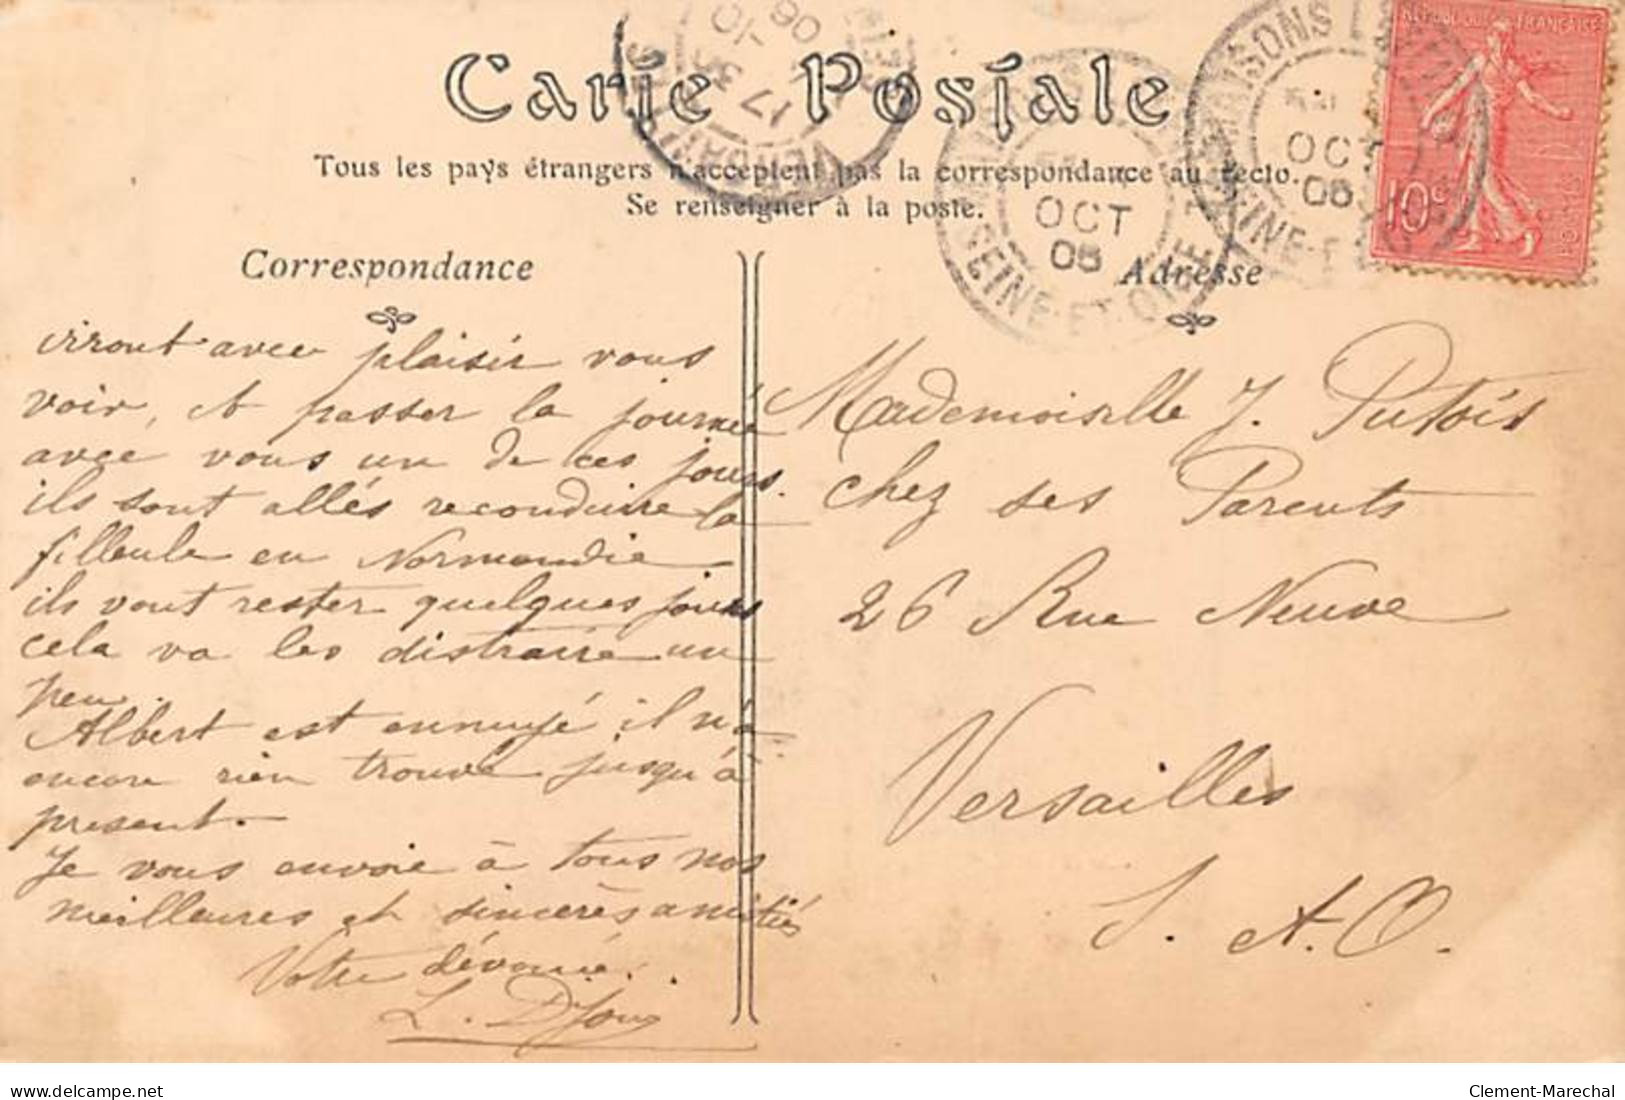 Carte Postale
Tous les pays étrangers n'acceptent pas la correspondance au recto.
Se renseigner à la poste.
Correspondance
irront avec plaisir vous
voir, et passer la journée
avec vous un de ces jours.
ils sont allés reconduire la
filleule en Normandie
ils vont rester quelques jours
cela va les distraire un
peu.
Albert est ennuyé il n'a
encore rien trouvé jusqu'à
present.
Je vous envoie à tous nos
meilleures et sincères amitiés
Votre dévouée.
L.
Adresse
Mademoiselle J. Putois
chez ses Parents
26 Rue Neuve
Versailles
S. et. O.
RÉPUBLIQUE FRANÇAISE
10c
POSTES
MAISONS
OCT
06
SEINE-ET-OISE
OCT
06
SEINE-ET-OISE
VERSAILLES
17 35
-10
06
delcampe.net
Clement-Marechal